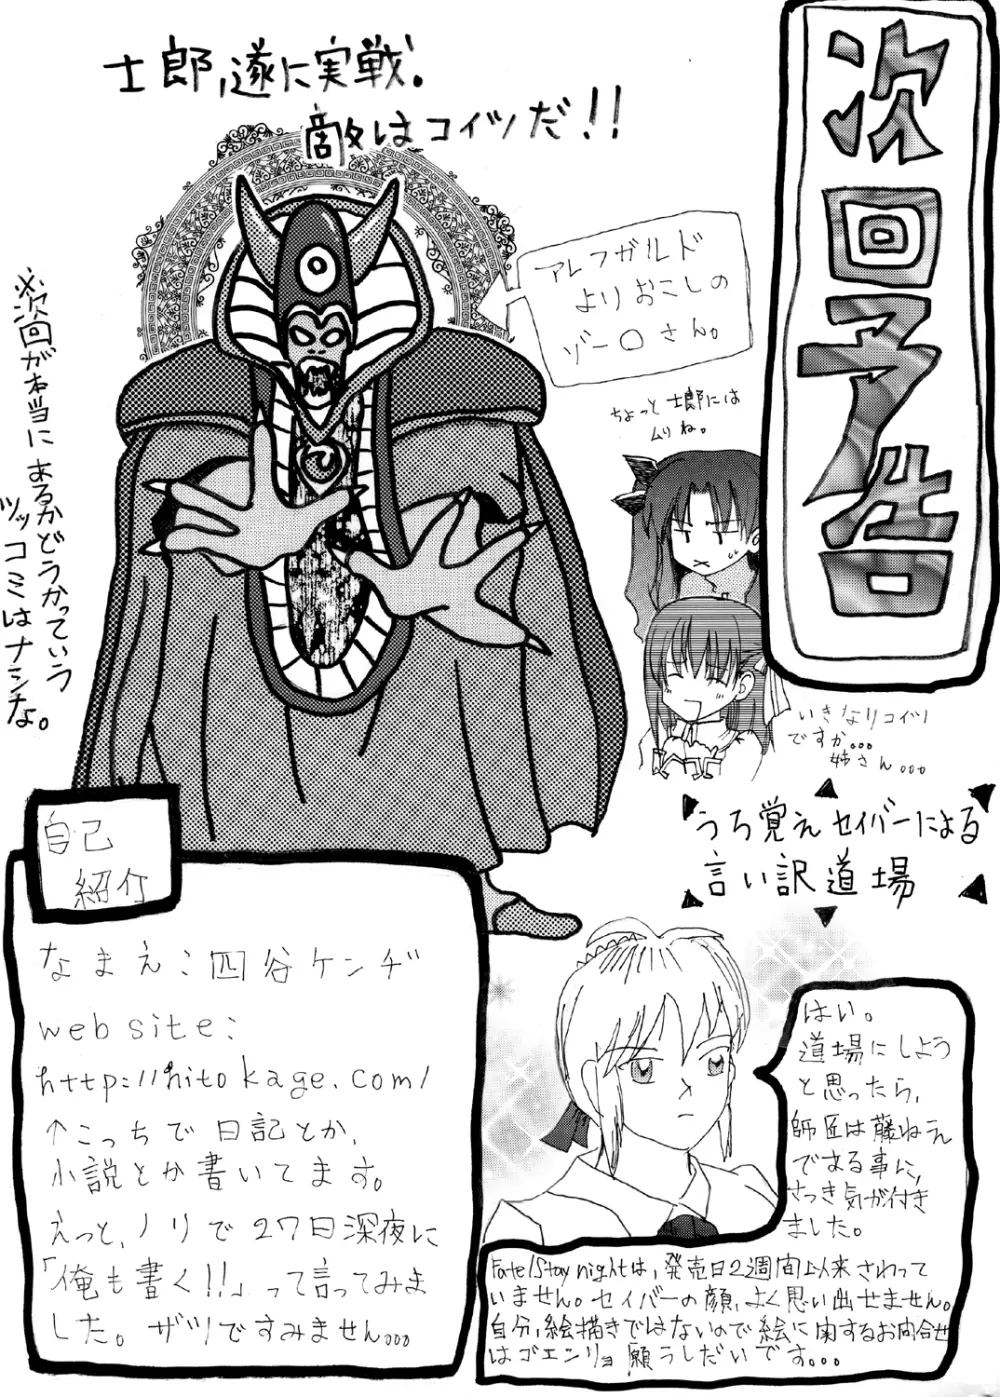 次回予告
士郎,遂に実戦.
敵はコイツだ!!
アレフガルド
よりおこしの
ゾーロさん。
ちょっと士郎には
ムリね。
いきなりコイツ
ですか...
姉さん...
※次回が本当にあるかどうかっていう
ツッコミはナシな。
うろ覚えセイバーによる
言い訳道場
はい。
道場にしよう
と思ったら,
師匠は藤ねえ
である事に,
さっき気が付き
ました。
Fate/Stay nightは,発売日2週間以来さわって
いません。セイバーの顔,よく思い出せません。
自分,絵描きではないので絵に関するお問合せ
はゴエンリョ願うしだいです...
自己
紹介
なまえ:四谷ケンヂ
web site:
http://hitokage.com/
↑こっちで日記とか,
小説とか書いてます。
えっと,ノリで27日深夜に
「俺も書く!!」って言ってみま
した。ザツですみません...